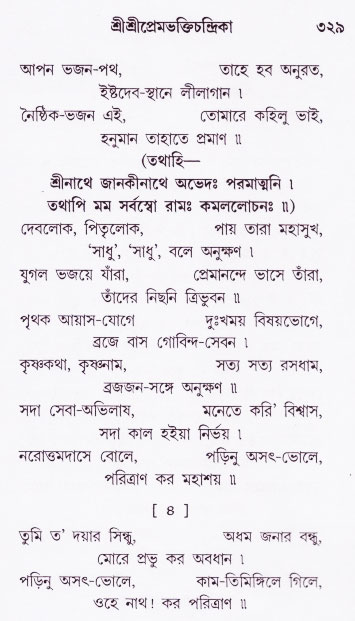 শ্রীশ্রীপ্রেমভক্তিচন্দ্রিকা ৩২৯
আপন ভজন-পথ, তাহে হব অনুরত,
ইষ্টদেব-স্থানে লীলাগান ।
নৈষ্ঠিক-ভজন এই, তোমারে কহিলু ভাই,
হনুমান তাহাতে প্রমাণ ॥
(তথাহি—
শ্রীনাথে জানকীনাথে অভেদঃ পরমাত্মনি ।
তথাপি মম সর্বস্বো রামঃ কমললোচনঃ ॥)
দেবলোক, পিতৃলোক, পায় তারা মহাসুখ,
‘সাধু’, ‘সাধু’, বলে অনুক্ষণ ।
যুগল ভজয়ে যাঁরা, প্রেমানন্দে ভাসে তাঁরা,
তাঁদের নিছনি ত্রিভুবন ॥
পৃথক আয়াস-যোগে দুঃখময় বিষয়ভোগে,
ব্রজে বাস গোবিন্দ-সেবন ।
কৃষ্ণকথা, কৃষ্ণনাম, সত্য সত্য রসধাম,
ব্রজজন-সঙ্গে অনুক্ষণ ॥
সদা সেবা-অভিলাষ, মনেতে করি’ বিশ্বাস,
সদা কাল হইয়া নির্ভয় ।
নরোত্তমদাসে বোলে, পড়িনু অসৎ-ভোলে,
পরিত্রাণ কর মহাশয় ॥
[ ৪ ]
তুমি ত’ দয়ার সিন্ধু, অধম জনার বন্ধু,
মোরে প্রভু কর অবধান ।
পড়িনু অসৎ-ভোলে, কাম-তিমিঙ্গিলে গিলে,
ওহে নাথ! কর পরিত্রাণ ॥